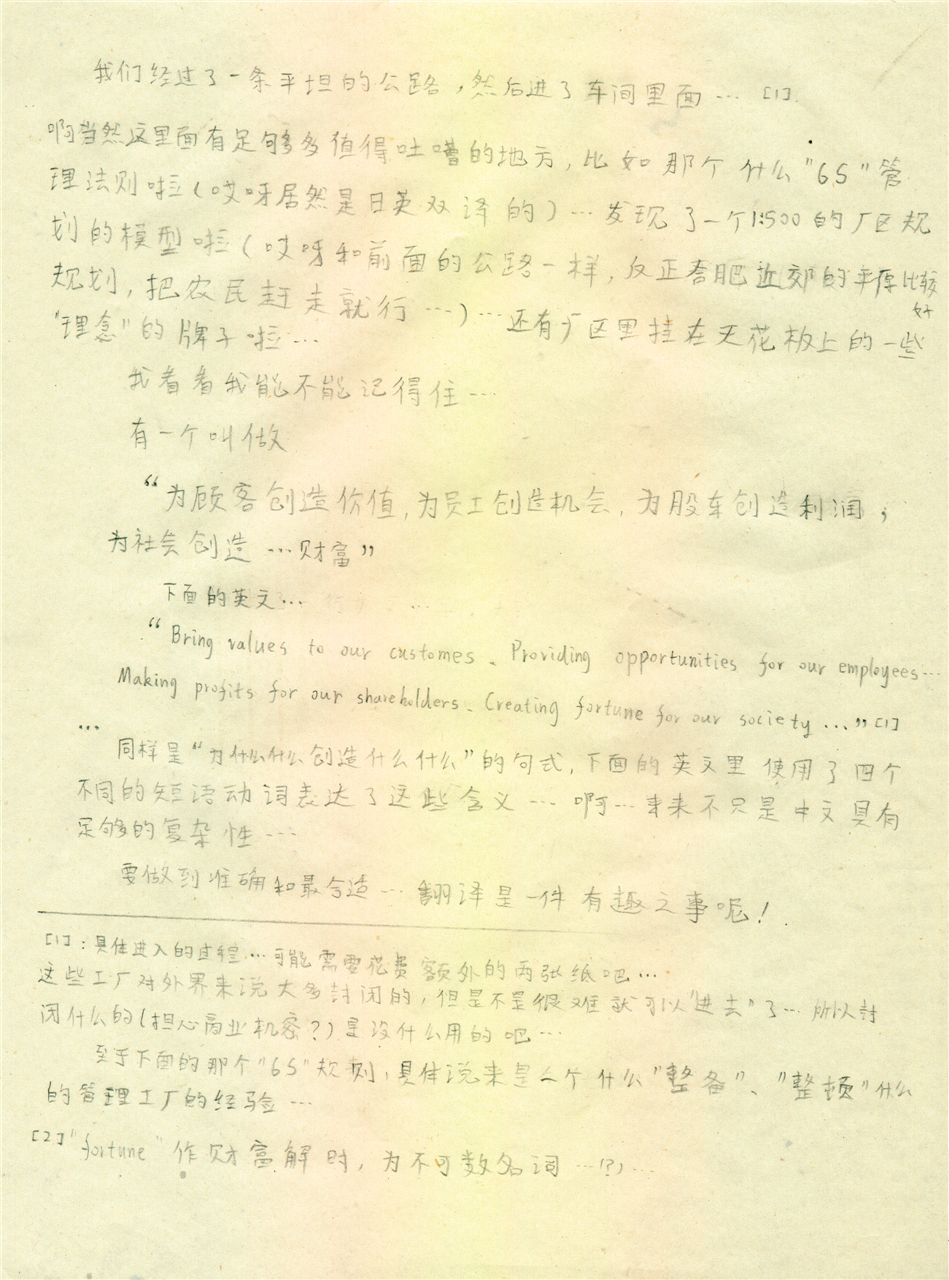 我们经过了一条平坦的公路，然后进了车间里面… [1].
啊当然这里面有足够多值得吐嘈的地方，比如那个什么"6S"管
理法则啦(哎呀居然是日英双译的)…发现了一个1:500的厂区规
划的模型啦(哎呀和前面的公路一样，反正合肥近郊的平原比较好
规划，把农民赶走就行…)…还有厂区里挂在天花板上的一些
"理念"的牌子啦…
我看看我能不能记得住…
有一个叫做
“为顾客创造价值,为员工创造机会，为股东创造利润，
为社会创造…财富”
下面的英文…
“Bring values to our customes、Providing opportunities for our employees…
Making profits for our shareholders、Creating fortune for our society...”[1]
...
同样是“为什么什么创造什么什么”的句式,下面的英文里使用了四个
不同的短语动词表达了这些含义…啊…本来不只是中文具有
足够的复杂性…
要做到准确和最合适…翻译是一件有趣之事呢!
[1]:具体进入的过程…可能需要花费额外的两张纸吧…
这些工厂对外界来说大多封闭的,但是不是很难就可以"进去"了…所以封
闭什么的(担心商业机密?)是没什么用的吧…
至于下面的那个"6S"规则,具体说来是六个什么"整备"、"整顿"什么
的管理工厂的经验…
[2]"fortune"作财富解时，为不可数名词…(?)…